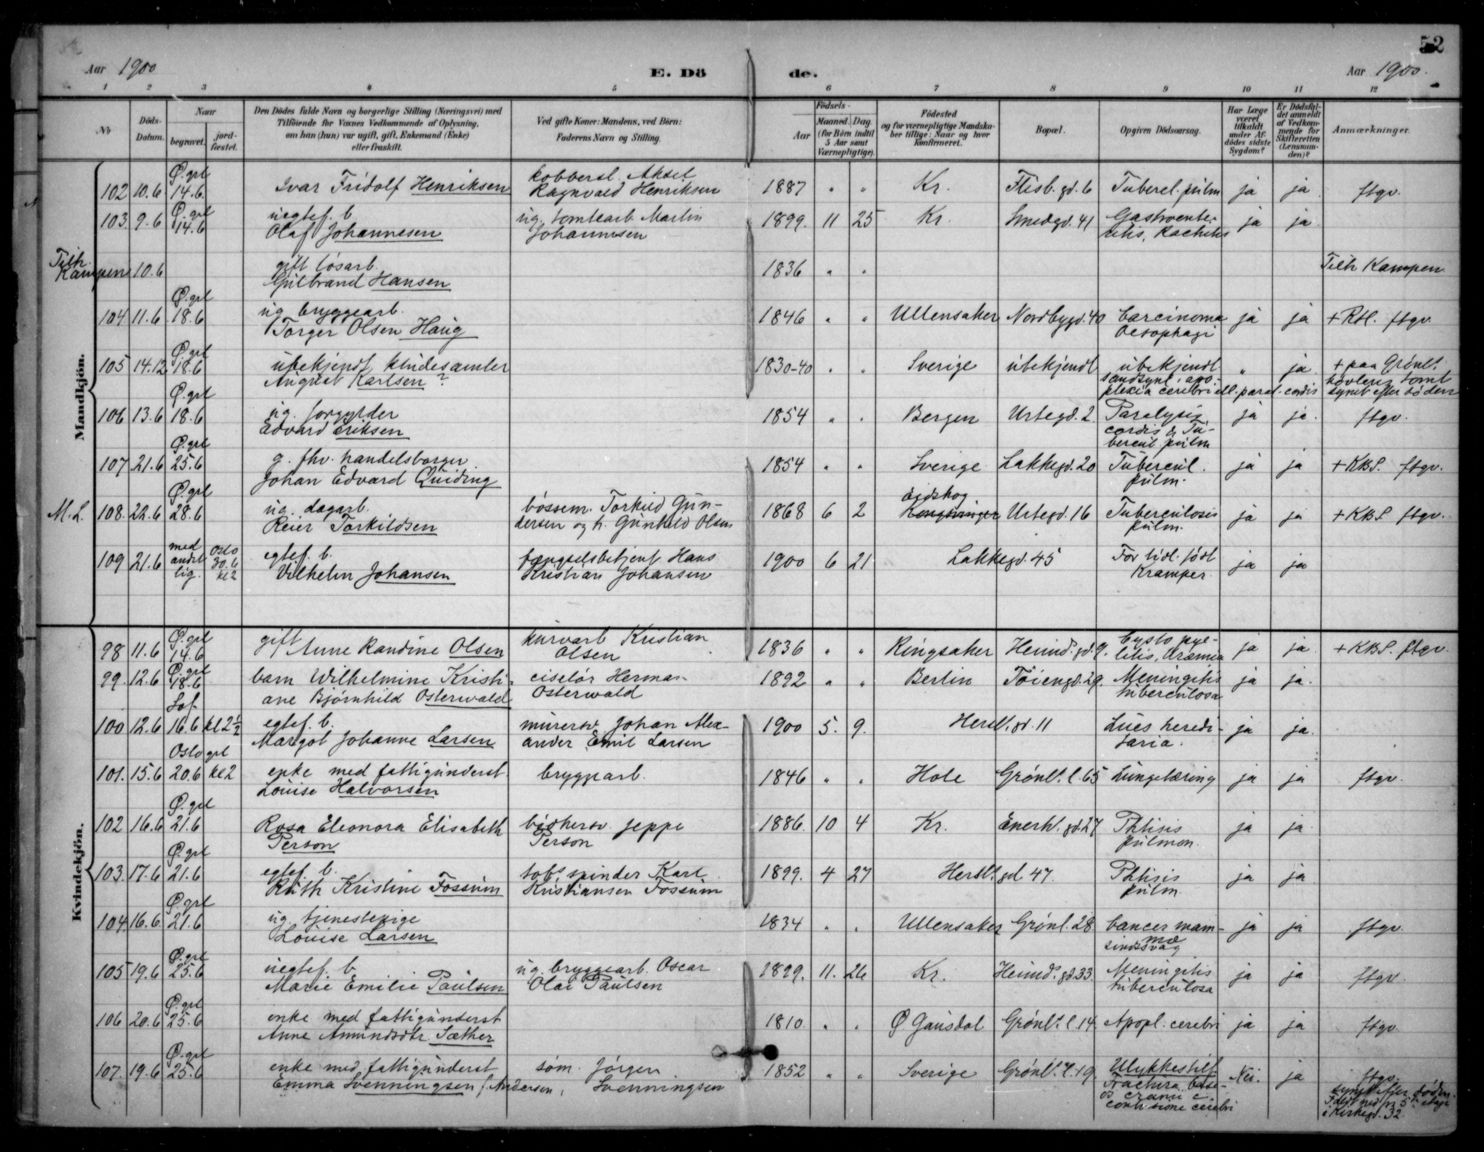 52
Aar 1900
E. Dö
de.
Aar 1900.
1 2 3 5 6 7 8 9 10 11 12
No
Döds-Datum.
Naar
begravet.
jord-fæstet.
Den Dödes fulde Navn og borgerlige Stilling (Næringsvei) med Tilföiende for Voxnes Vedkommende af Oplysning, om han (hun) var ugift, gift, Enkemand (Enke) eller fraskilt.
Ved gifte Koner: Mandens, ved Börn: Faderens Navn og Stilling.
Födsels-
Aar
Maaned. Dag.
(for Börn indtil 5 Aar samt Værnepligtige).
Födested og for værnepligtige Mandskaber tillige: Naar og hvor Konfirmeret.
Bopæl.
Opgiven Dödsaarsag.
Har Læge været tilkaldt under Afdödes sidste Sygdom?
Er Dödsfaldet anmeldt af Vedkommende for Skifteretten (Lensmanden)?
Anmærkninger.
Mandkjön.
102 10.6 Ø.grl 14.6 Ivar Fridolf Henriksen kobbersl. Aksel Ragnvald Henriksen 1887 " " Kr. Flisb.gd. 6 Tubercl. pulm ja ja ftgv.
103. 9.6 Ø.grl 14.6 uegtef. b. Olaf Johannesen ug. tomtearb. Martin Johannesen 1899. 11 25 Kr. Smedgd. 41 Gastroenteritis, Rachitis ja ja
Tilh. Kampen 10.6 gift løsarb. Gulbrand Hansen 1836 " " Tilh Kampen
104 11.6 Ø.grl 18.6 ug. bryggearb. Torger Olsen Haug 1846 " " Ullensaker Nordbygd. 40 Carcinoma Oesophagi ja ja + RH. ftgv.
105 14.12 Ø.grl 18.6 ubekjendt kludesamler August Karlsen? 1830-40 " " Sverige ubekjendt ubekjendt sandsynl. apoplexia cerebri ell. paral. cordis " ja + paa Grønl. høvleris tomt synet efter døden
106 13.6 Ø.grl 18.6 ug. forgylder Edvard Eriksen 1854 " " Bergen Urtegd. 2 Paralysis cordis & Tubercul. pulm ja ja. ftgv.
107 21.6 Ø.grl 25.6 g. fhv. handelsborger Johan Edvard Quiding 1854 " " Sverige Lakkegd. 20 Tubercul. pulm. ja ja + KBS. ftgv.
M.L. 108. 22.6 Ø.grl 28.6 ug. dagarb. Reier Torkildsen bøssem. Torkild Gundersen og h. Gunhild Olsen 1868 6 2 Eidskog Kongsvinger Urtegd. 16 Tuberculosis pulm. ja ja + KBS. ftgv.
109 21.6 med andet lig. Oslo 30.6 kl 2 egtef. b. Vilhelm Johansen fængselsbetjent Hans Kristian Johansen 1900 6 21 Lakkegd. 45 For tidl. født Kramper. ja ja
Kvindekjön.
98 11.6 Ø.grl 14.6 gift Anne Randine Olsen kurvarb Kristian Olsen 1836 " " Ringsaker Heimd.gd. 9. Cysto pyelitis, Uræmia ja ja + KBS. ftgv.
99. 12.6 Ø.grl 18.6 barn Wilhelmine Kristiane Bjørnhild Osterwald ciselør Herman Osterwald 1892 " " Berlin Tøiengd. 29. Meningitis tuberculosa ja ja.
100 12.6 Sof. 16.6 kl 2½ egtef. b. Margot Johanne Larsen murersv. Johan Alexander Emil Larsen 1900 5. 9. Hersl.gd. 11 Lues hereditaria. ja ja.
101. 15.6 Oslo grl 20.6 kl 2 enke med fattigunderst. Louise Halvorsen bryggearb. 1846 " " Hole Grønl. l. 65 Lungetæring ja ja ftgv.
102 16.6 Ø.grl 21.6 Rosa Eleonora Elisabeth Person bødkersv. Jeppe Person 1886. 10 4 Kr. Enerhl.gd. 27 Phtisis pulmon. ja ja.
103. 17.6 Ø.grl 21.6 egtef. b. Ruth Kristine Fossum tobspinder Karl Kristiansen Fossum 1899. 4 27 Hersl.gd 47. Phtisis pulm ja ja
104 16.6 Ø.grl 21.6 ug. tjenestepige Louise Larsen 1834 " " Ullensaker Grønl. 28. Cancer mammæ sindssvag ja ja ftgv.
105 19.6 Ø.grl 25.6 uegtef. b. Marie Emilie Paulsen ug. bryggearb. Oscar Olai Paulsen 1899. 11. 26 Kr. Heimd.gd. 33 Meningitis tuberculosa ja ja ftgv.
106 20.6 Ø.grl 25.6 enke med fattigunderst Anne Amundsdtr Sæther 1810 " " Ø Gausdal Grønl. l. 14. Apopl. cerebri ja ja ftgv.
107. 19.6 Ø.grl 25.6 enke med fattigunderst Emma Svenningsen f. Andersen, søm. Jørgen Svenningsen 1852 " " Sverige Grønl. l. 19. Ulykkestilf. Fractura baseos cranii c. contusione cerebri Nei. ja ftgv. synet efter døden. i Kirkegd. 32